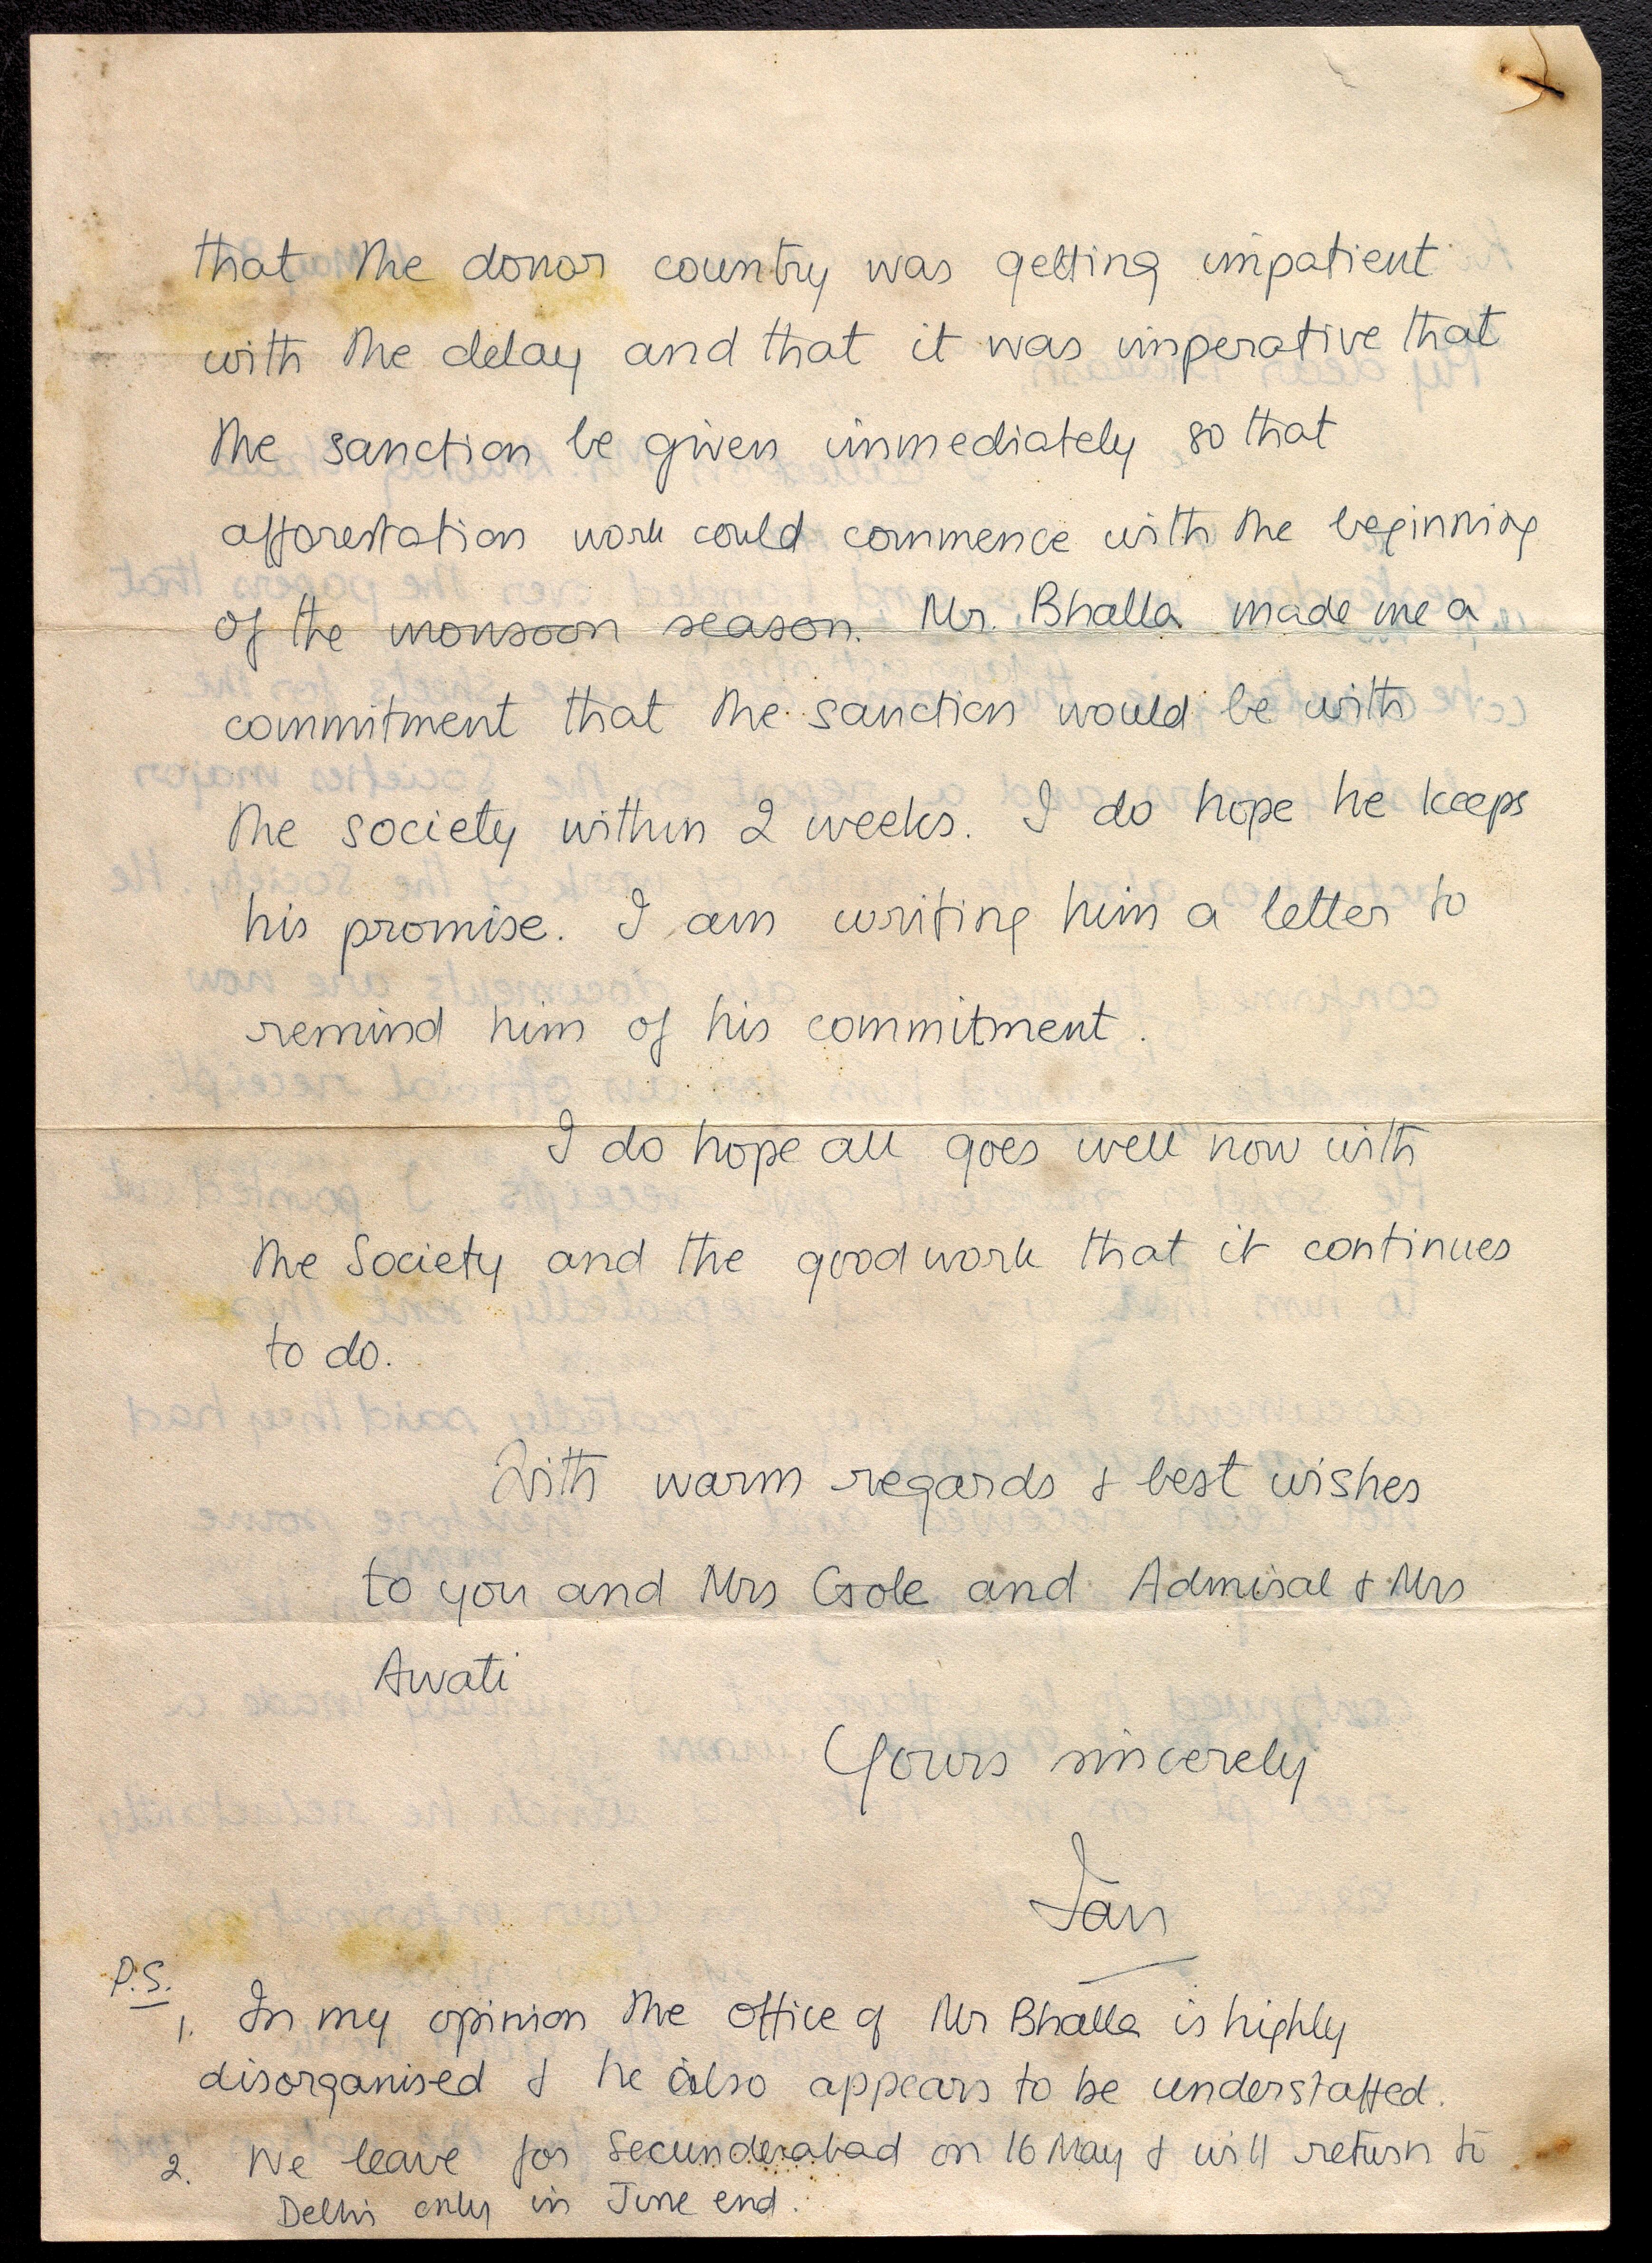 that the donor country was getting impatient
with the delay and that it was imperative that
the sanction be given immediately so that
afforestation work could commence with the beginning
of the monsoon season. Mr. Bhalla made me a
commitment that the sanction would be with
the society within 2 weeks. I do hope he keeps
his promise. I am writing him a letter to
remind him of his commitment.
I do hope all goes well now with
the Society and the good work that it continues
to do.
With warm regards & best wishes
to you and Mrs Gole and Admiral & Mrs
Awati
Yours sincerely
Ian
P.S.
1. In my opinion the office of Mr Bhalla is highly
disorganised & he also appears to be understaffed.
2. We leave for Secunderabad on 16 May & will return to
Delhi only in June end.